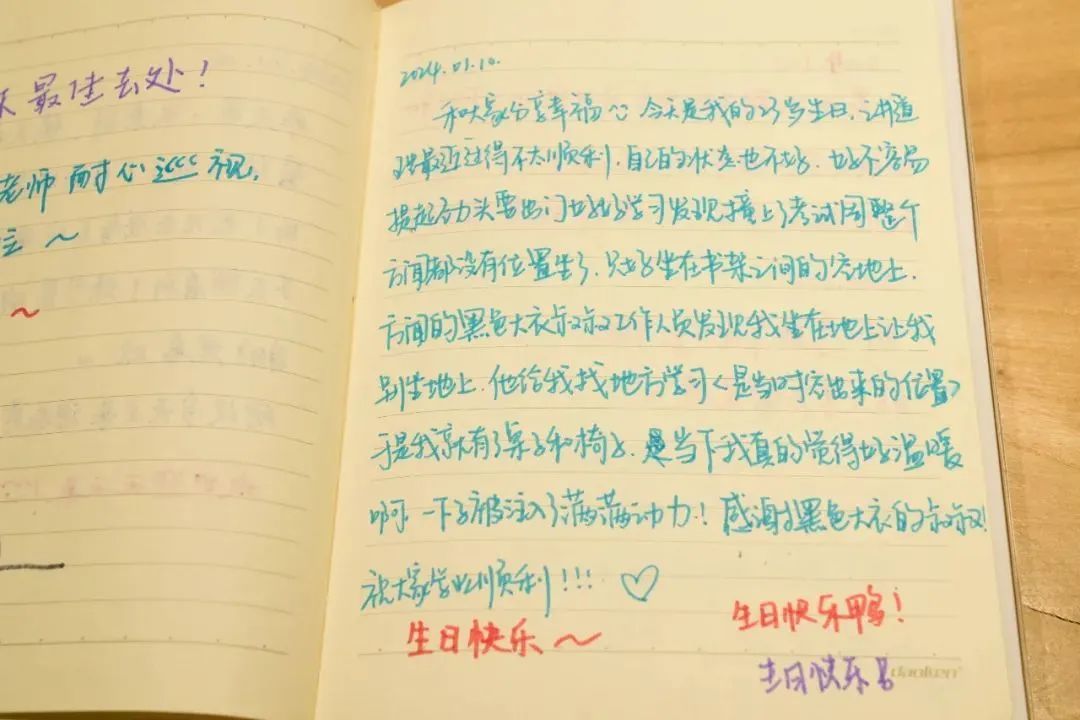 最佳去处！
老师耐心
祝，
～
～
2024.01.10.
和大家分享幸福 今天是我的23岁生日，讲道
理最近过得不太顺利，自己的状态也不好，好不容易
提起劲头要出门好好学习发现撞上了考试周整个
方闻都没有位置坐了，只好坐在书架之间的空地上，
方闻的黑色大衣叔叔工作人员发现我坐在地上让我
别坐地上，他给我找地方学习<是当时空出来的位置>
于是我就有了桌子和椅子，当下我真的觉得好温暖
啊 一下子被注入了满满动力！感谢黑色大衣的叔叔！
祝大家学业顺利！！！♡
生日快乐～
生日快乐鸭！
生日快乐